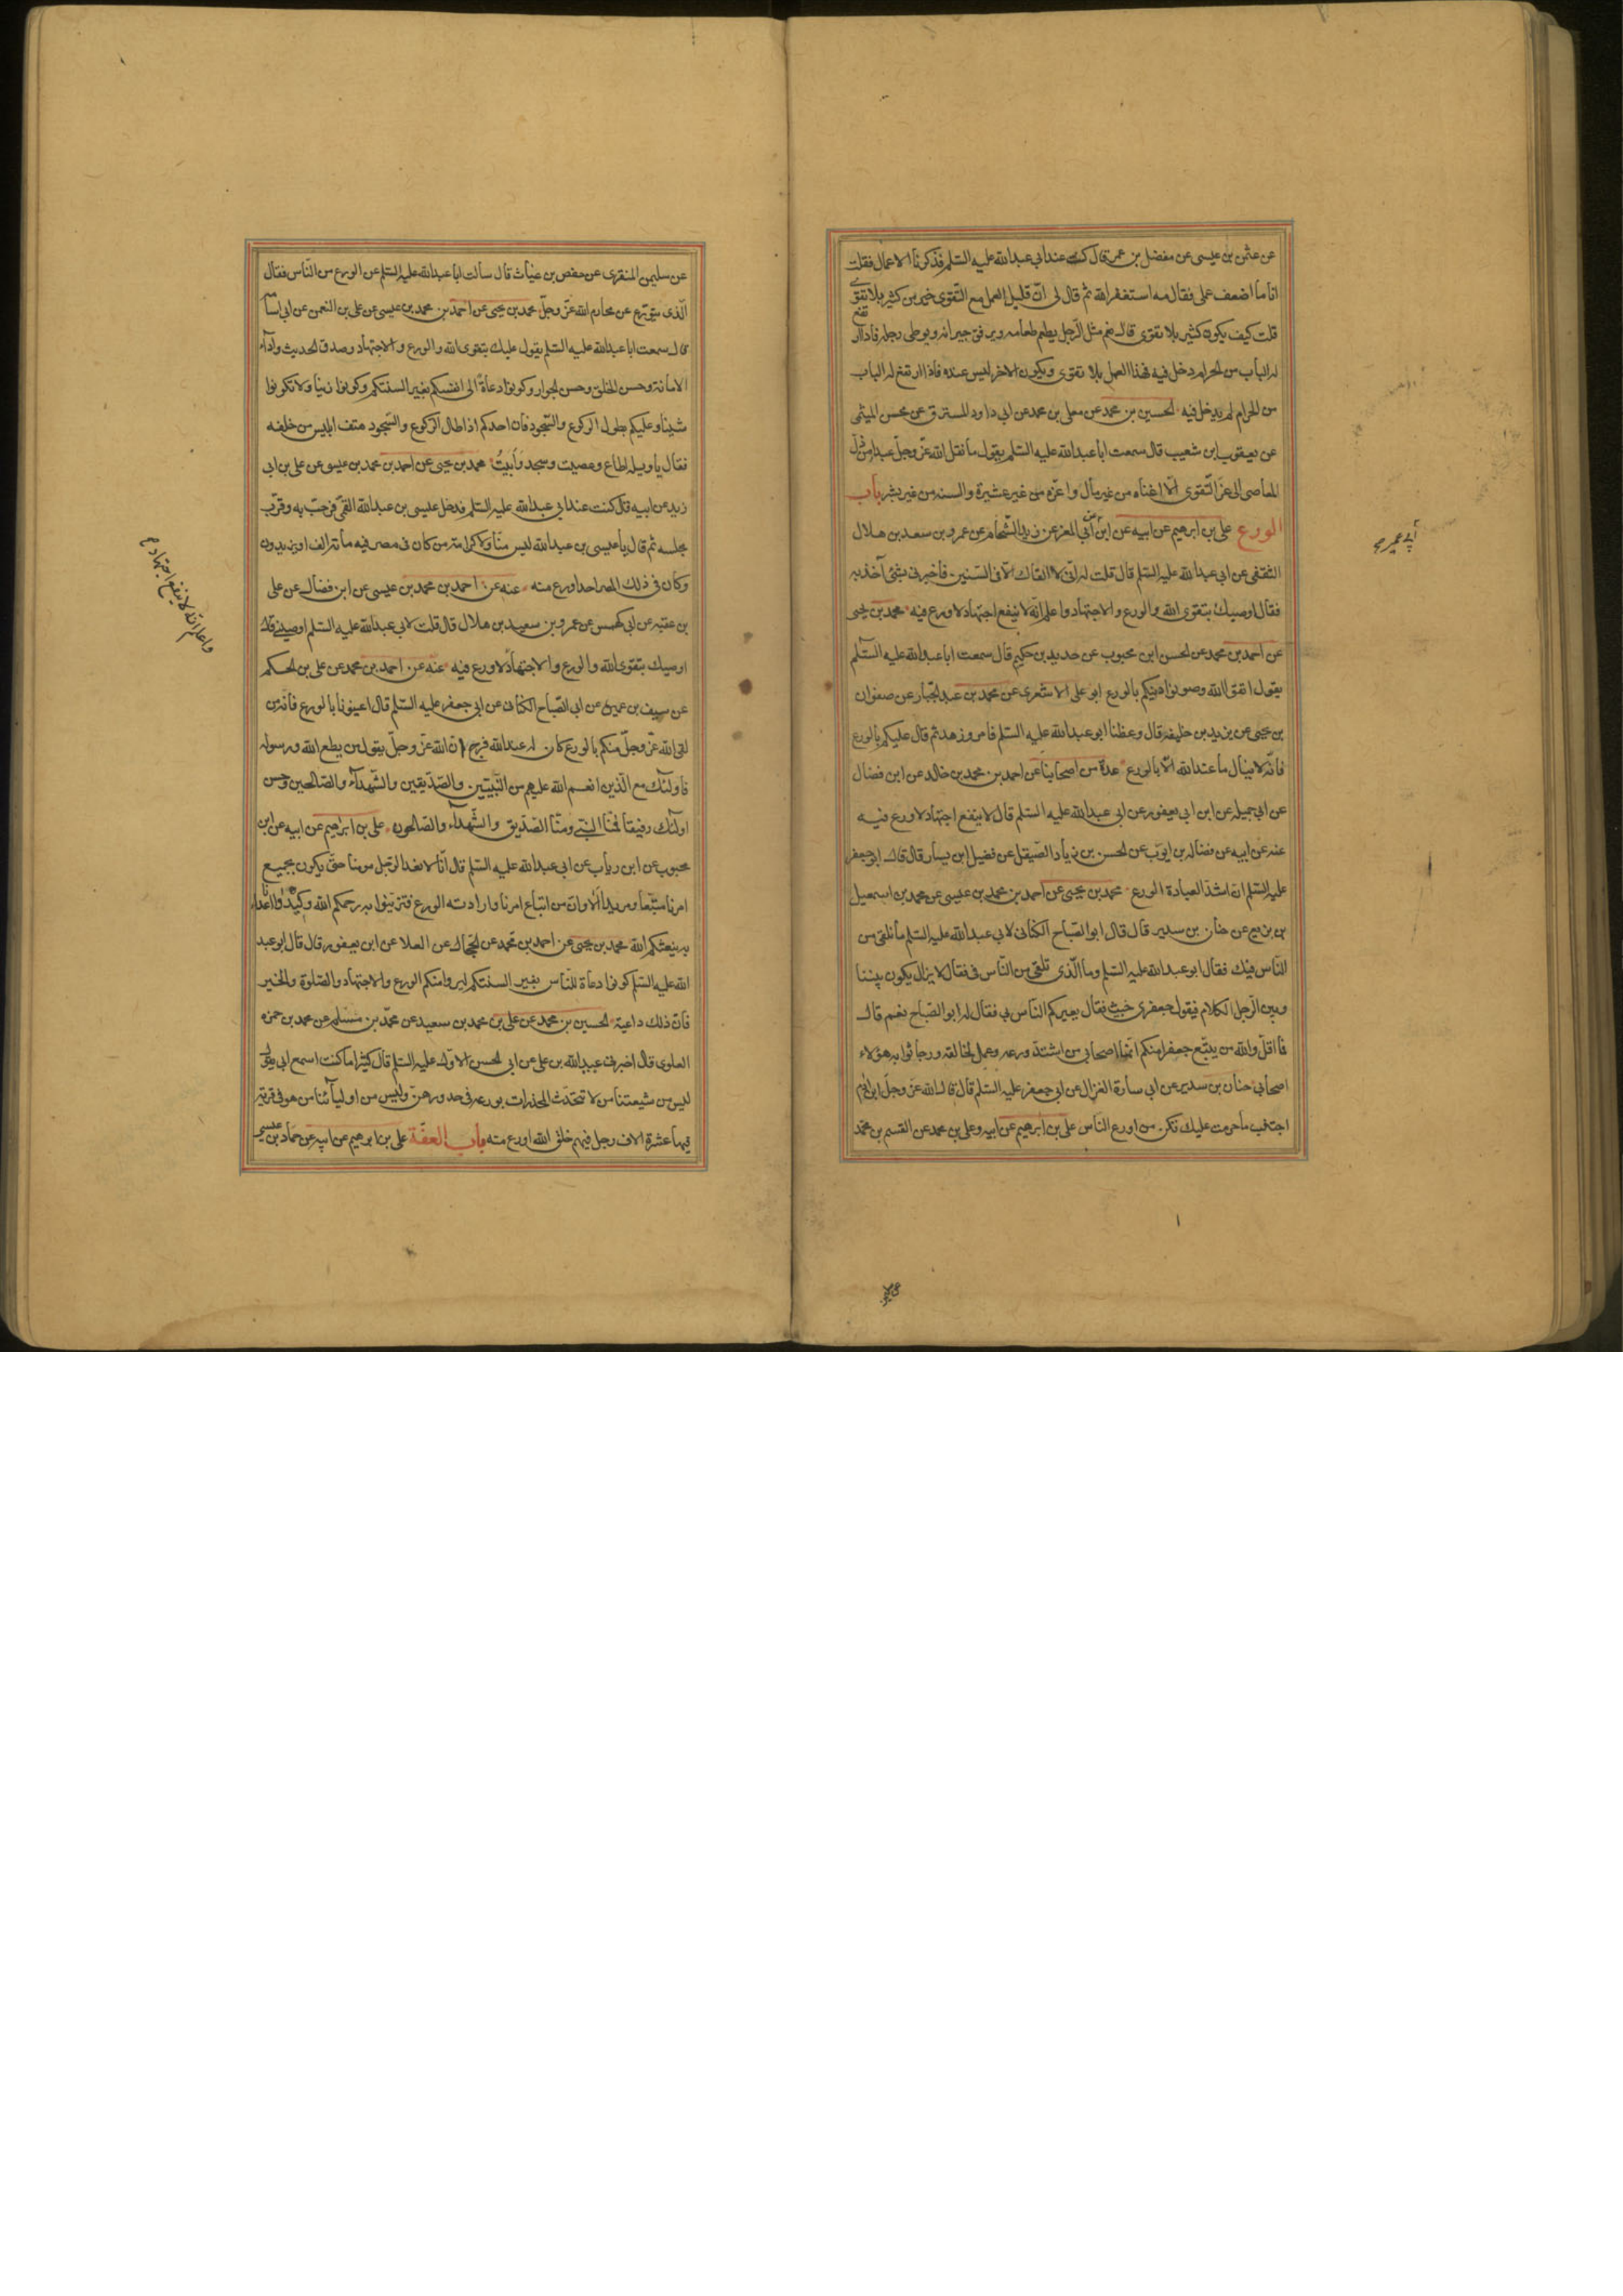 عن عثمن بن عيسى عن مفضل بن عمر قال كنت عند ابي عبدالله عليه السّلم فذكرنا الاعمال فقلت
انا ما اضعف عملى فقال مه استغفر الله ثم قال لى انّ قليل العمل مع التّقوى خير من كثير بلا تقوى
قلت كيف يكون كثير بلا تقوى قال نعم مثل الرّجل يطعم طعامه ويرفق جيرانه ويوطى رحله فاذا ارتفع
له الباب من الحرام دخل فيه فهذا العمل بلا تقوى ويكون الاخر ليس عنده فاذا ارتفع له الباب
من الحرام لم يدخل فيه الحسين بن محمد عن معلى بن محمد عن ابى داود المسترق عن محسن الميثمى
عن يعقوب ابن شعيب قال سمعت ابا عبدالله عليه السّلم يقول ما نقل الله عزّ وجلّ عبدا من ذلّ
المعاصى الى عزّ التّقوى الّا اغناه من غير مال واعزّه من غير عشيرة وانسه من غير بشر باب
الورع على بن ابرهيم عن ابيه عن ابن ابى المعز عن زيد الشّحام عن عمرو بن سعد بن هلال
الثقفى عن ابى عبدالله عليه السّلم قال قلت له انّى لا القاك الّا فى السّنين فاخبرنى بشئ آخذ به
فقال اوصيك بتقوى الله والورع والاجتهاد واعلم انّه لا ينفع اجتهاد لا ورع فيه محمد بن يحيى
عن احمد بن محمد عن الحسن ابن محبوب عن حديد بن حكيم قال سمعت ابا عبدالله عليه السّلم
يقول اتقوا الله وصونوا دينكم بالورع ابو على الاشعرى عن محمد بن عبد الجبّار عن صفوان
بن يحيى عن يزيد بن خليفه قال وعظنا ابو عبدالله عليه السّلم فامر وزهد ثم قال عليكم بالورع
فانّه لا ينال ما عند الله الّا بالورع عدة من اصحابنا عن احمد بن محمد بن خالد عن ابن فضال
عن ابى جميله عن ابن ابى يعفور عن ابى عبدالله عليه السّلم قال لا ينفع اجتهاد لا ورع فيه
عنه عن ابيه عن فضاله بن ايوب عن الحسن بن زياد الصّيقل عن فضيل ابن يسار قال قال ابو جعفر
عليه السّلم ان اشدّ العبادة الورع محمد بن يحيى عن احمد بن محمد بن عيسى عن محمد بن اسمعيل
بن بزيع عن حنان بن سدير قال قال ابو الصّباح الكنانى لابى عبدالله عليه السّلم ما نلقى من
النّاس فيك فقال ابو عبدالله عليه السّلم وما الّذى تلقى من النّاس فى فقال لا يزال يكون بيننا
وبين الرّجل الكلام فيقول جعفرى خبيث فقال يعيركم النّاس بى فقال له ابو الصّباح نعم قال
فما اقلّ والله من يتّبع جعفرا منكم انّما اصحابى من اشتدّ ورعه وعمل لخالقه ورجا ثوابه هؤلاء
اصحابى حنان بن سدير عن ابى سارة الغزال عن ابى جعفر عليه السّلم قال قال الله عزّ وجلّ ابن ادم
اجتنب ما حرمت عليك تكن من اورع النّاس على بن ابرهيم عن ابيه وعلى بن محمد عن القسم بن محمّد
ابى عمير صح
عن سليمن المنقرى عن حفص بن غياث قال سألت ابا عبدالله عليه السّلم عن الورع من النّاس فقال
الّذى يتورّع عن محارم الله عزّ وجلّ محمد بن يحيى عن احمد بن محمد بن عيسى عن على بن النعمن عن ابى اسامة
قال سمعت ابا عبدالله عليه السّلم يقول عليك بتقوى الله والورع والاجتهاد وصدق الحديث وآداء
الامانة وحسن الخلق وحسن الجوار وكونوا دعاة الى انفسكم بغير السنتكم وكونوا زينا ولا تكونوا
شينا وعليكم بطول الركوع والسّجود فان احدكم اذا طال الرّكوع والسّجود هتف ابليس من خلفه
فقال يا ويله اطاع وعصيت وسجد وأبيتُ محمد بن يحيى عن احمد بن محمد بن عيسى عن على بن ابى
زيد عن ابيه قال كنت عند ابى عبدالله عليه السّلم فدخل عيسى بن عبدالله القمّى فرحّب به وقرّب
مجلسه ثم قال يا عيسى بن عبدالله ليس منّا ولا كرامة من كان فى مصر فيه مائة الف او يزيدون
وكان فى ذلك المصر احد اورع منه عنه عن احمد بن محمد بن عيسى عن ابن فضال عن على
بن عقبه عن ابى كهمس عن عمرو بن سعيد بن هلال قال قلت لابى عبدالله عليه السّلم اوصينى قال
اوصيك بتقوى الله والورع والاجتهاد لا ورع فيه عنه عن احمد بن محمد عن على بن الحكم
عن سيف بن عميرة عن ابى الصّباح الكنانى عن ابى جعفر عليه السّلم قال اعينونا بالورع فانه من
لقى الله عزّ وجلّ منكم بالورع كان له عند الله فرجا انّ الله عزّ وجلّ يقول من يطع الله ورسوله
فاولئك مع الّذين انعم الله عليهم من النّبيّين والصّدّيقين والشّهدآء والصّالحين وحسن
اولئك رفيقا فمنّا النّبى ومنّا الصّدّيق والشّهدآء والصّالحون على بن ابراهيم عن ابيه عن ابن
محبوب عن ابن رياب عن ابى عبدالله عليه السّلم قال انّا لا نعد الرّجل مومنا حتّى يكون بجميع
امرنا متّبعا ومريدا الا وان من اتباع امرنا وارادته الورع فتزيّنوا به رحمكم الله وكيدوا اعداءنا
به ينعشكم الله محمد بن يحيى عن احمد بن محمد عن الحجّال عن العلا عن ابن يعفور قال قال ابو عبد
الله عليه السّلم كونوا دعاة للنّاس بغير السنتكم ليروا منكم الورع والاجتهاد والصّلوة والخير
فانّ ذلك داعية الحسين بن محمد عن على بن محمد بن سعيد عن محمّد بن مسلم عن محمد بن حمزه
العلوى قال اخبرنى عبيدالله بن على عن ابى الحسن الاوّل عليه السّلم قال كثيرا ما كنت اسمع ابى يقول
ليس من شيعتنا من لا تتحدّث المخدرات بورعه فى خدورهنّ وليس من اوليائنا من هو فى قرية
فيها عشرة الاف رجل فيهم خلق الله اورع منه باب العفّة على بن ابرهيم عن ابيه عن حمّاد بن عيسى
واعلم انّه لا ينفع اجتهاد صح